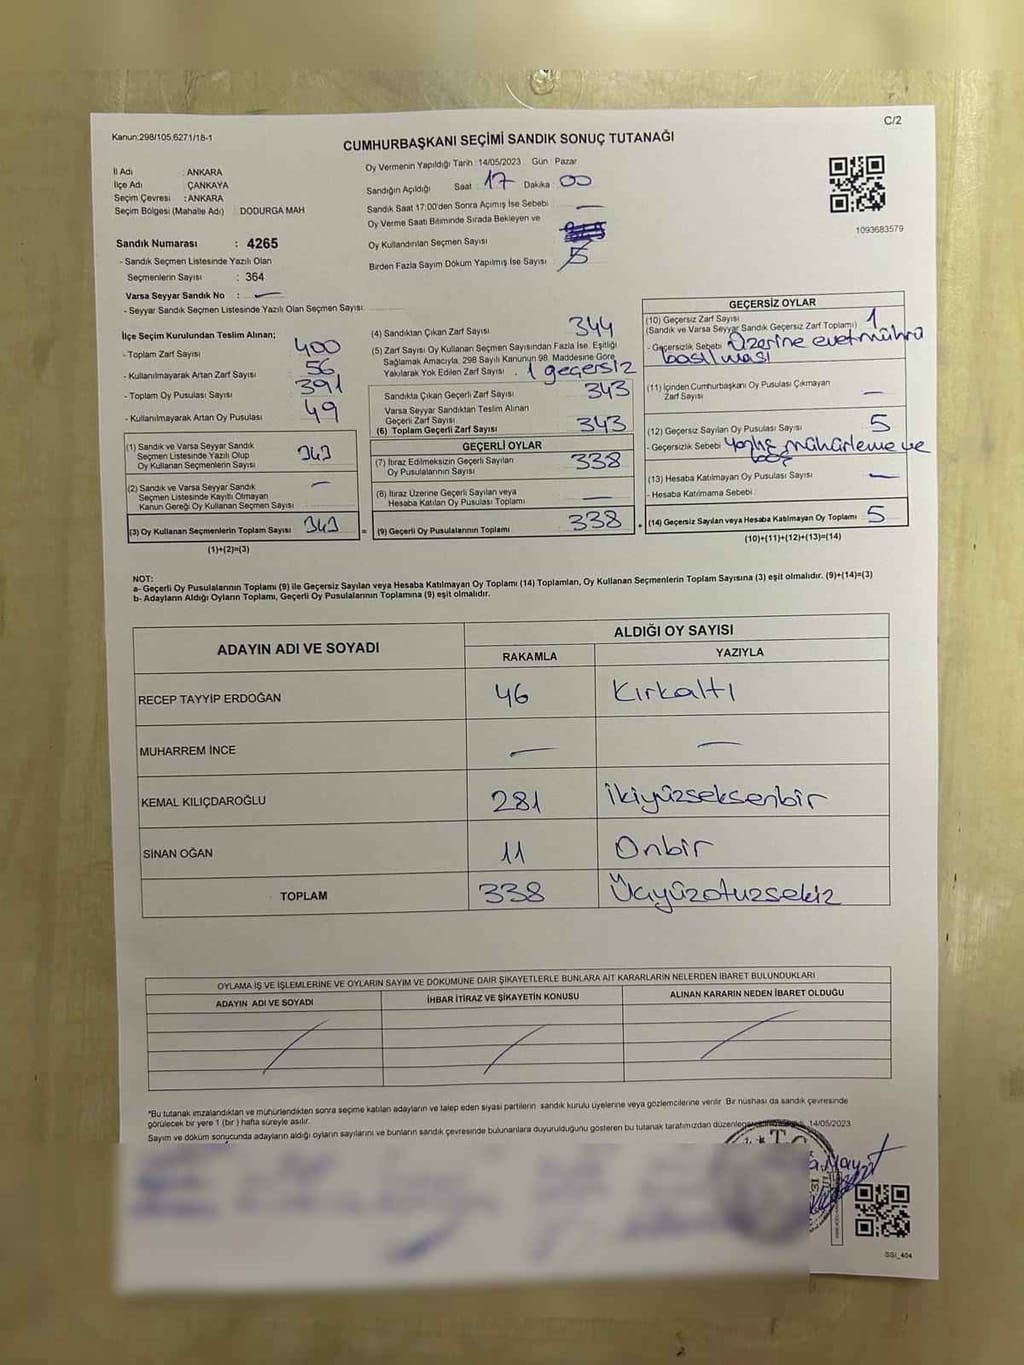 C/2
Kanun:298/105,6271/18-1
CUMHURBAŞKANI SEÇİMİ SANDIK SONUÇ TUTANAĞI
İl Adı : ANKARA
İlçe Adı ÇANKAYA
Seçim Çevresi : ANKARA
Seçim Bölgesi (Mahalle Adı) DODURGA MAH
Sandık Numarası : 4265
- Sandık Seçmen Listesinde Yazılı Olan
Seçmenlerin Sayısı : 364
Varsa Seyyar Sandık No : —
- Seyyar Sandık Seçmen Listesinde Yazılı Olan Seçmen Sayısı
Oy Vermenin Yapıldığı Tarih : 14/05/2023 Gün Pazar
Sandığın Açıldığı Saat 17 Dakika 00
Sandık Saat 17:00'den Sonra Açımış İse Sebebi —
Oy Verme Saati Bitiminde Sırada Bekleyen ve
Oy Kullandırılan Seçmen Sayısı
Birden Fazla Sayım Döküm Yapılmış İse Sayısı
1093683579
İlçe Seçim Kurulundan Teslim Alınan;
- Toplam Zarf Sayısı 400
- Kullanılmayarak Artan Zarf Sayısı 56
- Toplam Oy Pusulası Sayısı 391
- Kullanılmayarak Artan Oy Pusulası 49
(1) Sandık ve Varsa Seyyar Sandık
Seçmen Listesinde Yazılı Olup
Oy Kullanan Seçmenlerin Sayısı 343
(2) Sandık ve Varsa Seyyar Sandık
Seçmen Listesinde Kayıtlı Olmayan
Kanun Gereği Oy Kullanan Seçmen Sayısı —
(3) Oy Kullanan Seçmenlerin Toplam Sayısı 343 =
(1)+(2)=(3)
(4) Sandıktan Çıkan Zarf Sayısı 344
(5) Zarf Sayısı Oy Kullanan Seçmen Sayısından Fazla İse, Eşitliği
Sağlamak Amacıyla, 298 Sayılı Kanunun 98. Maddesine Göre
Yakılarak Yok Edilen Zarf Sayısı 1 geçersiz
Sandıkta Çıkan Geçerli Zarf Sayısı 343
Varsa Seyyar Sandıktan Teslim Alınan
Geçerli Zarf Sayısı
(6) Toplam Geçerli Zarf Sayısı 343
GEÇERLİ OYLAR
(7) İtiraz Edilmeksizin Geçerli Sayılan
Oy Pusulalarının Sayısı 338
(8) İtiraz Üzerine Geçerli Sayılan veya
Hesaba Katılan Oy Pusulası Toplamı —
(9) Geçerli Oy Pusulalarının Toplamı 338 +
GEÇERSİZ OYLAR
(10) Geçersiz Zarf Sayısı 1
(Sandık ve Varsa Seyyar Sandık Geçersiz Zarf Toplamı)
- Geçersizlik Sebebi Üzerine evet mührü
basılması
(11) İçinden Cumhurbaşkanı Oy Pusulası Çıkmayan
Zarf Sayısı —
(12) Geçersiz Sayılan Oy Pusulası Sayısı 5
- Geçersizlik Sebebi Yanlış mühürleme ve
boş
(13) Hesaba Katılmayan Oy Pusulası Sayısı —
- Hesaba Katılmama Sebebi
(14) Geçersiz Sayılan veya Hesaba Katılmayan Oy Toplamı 5
(10)+(11)+(12)+(13)=(14)
NOT:
a- Geçerli Oy Pusulalarının Toplamı (9) ile Geçersiz Sayılan veya Hesaba Katılmayan Oy Toplamı (14) Toplamları, Oy Kullanan Seçmenlerin Toplam Sayısına (3) eşit olmalıdır. (9)+(14)=(3)
b- Adayların Aldığı Oyların Toplamı, Geçerli Oy Pusulalarının Toplamına (9) eşit olmalıdır.
ADAYIN ADI VE SOYADI ALDIĞI OY SAYISI
RAKAMLA YAZIYLA
RECEP TAYYİP ERDOĞAN 46 Kırkaltı
MUHARREM İNCE — —
KEMAL KILIÇDAROĞLU 281 ikiyüzseksenbir
SİNAN OĞAN 11 Onbir
TOPLAM 338 Üçyüzotuzsekiz
OYLAMA İŞ VE İŞLEMLERİNE VE OYLARIN SAYIM VE DÖKÜMÜNE DAİR ŞİKAYETLERLE BUNLARA AİT KARARLARIN NELERDEN İBARET BULUNDUKLARI
ADAYIN ADI VE SOYADI İHBAR İTİRAZ VE ŞİKAYETİN KONUSU ALINAN KARARIN NEDEN İBARET OLDUĞU
*Bu tutanak imzalandıktan ve mühürlendikten sonra seçime katılan adayların ve talep eden siyasi partilerin sandık kurulu üyelerine veya gözlemcilerine verilir. Bir nüshası da sandık çevresinde
görülecek bir yere 1 (bir) hafta süreyle asılır.
Sayım ve döküm sonucunda adayların aldığı oyların sayılarını ve bunların sandık çevresinde bulunanlara duyurulduğunu gösteren bu tutanak tarafımızdan 14/05/2023
T.C
SSI_404